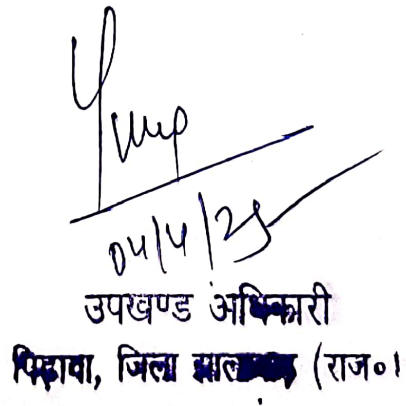 04/4/25
उपखण्ड अधिकारी
पिड़ावा, जिला झालावाड़ (राज०)